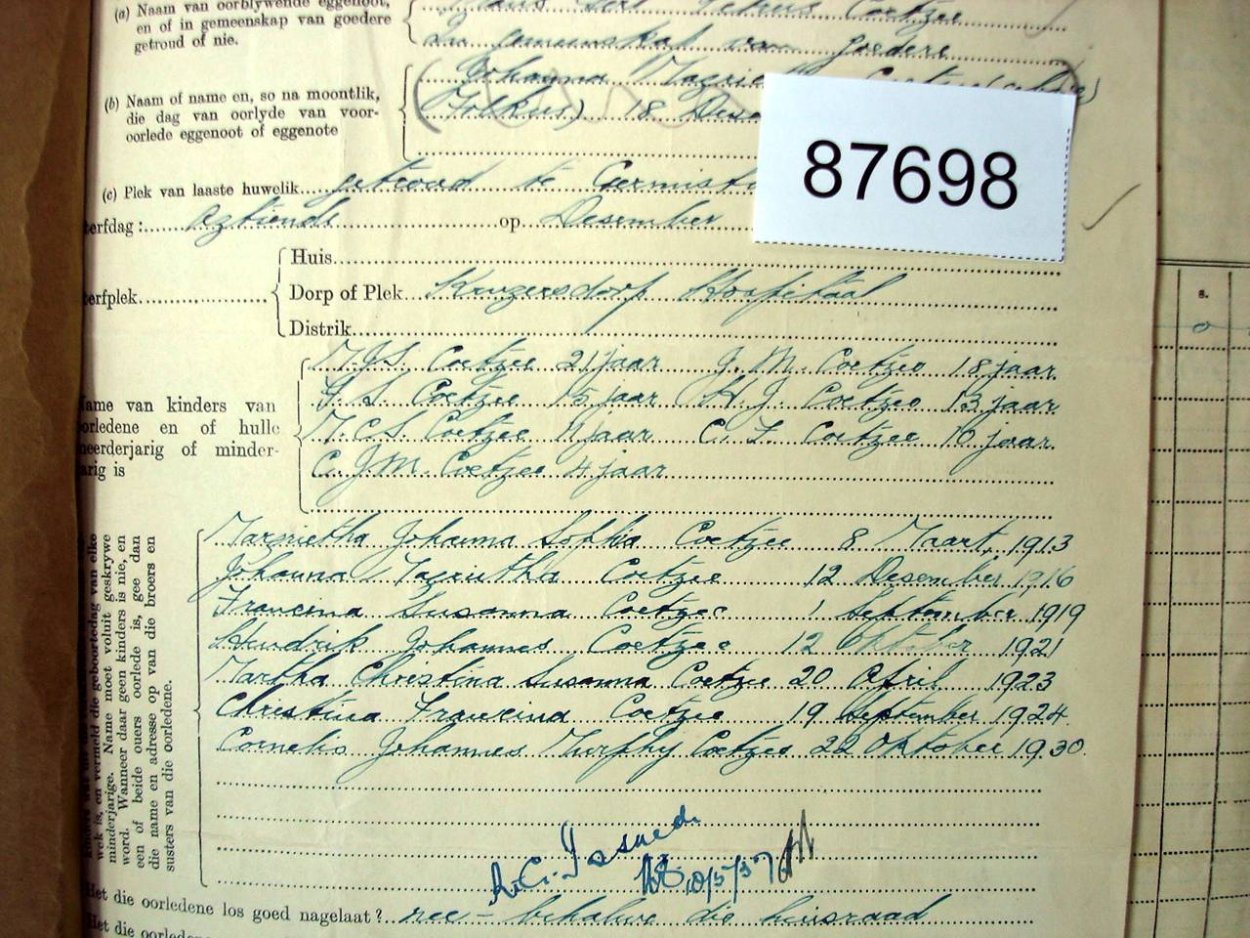 (a) Naam van oorblywende eggenoot,
en of in gemeenskap van goedere
getroud of nie.
Petrus Coetzee
in gemeenskap van goedere
(b) Naam of name en, so na moontlik,
die dag van oorlyde van voor-
oorlede eggenoot of eggenote
Johanna
18
87698
(c) Plek van laaste huwelik getroud te
erfdag: agtiende op Desember
Huis
erfplek
Dorp of Plek Krugersdorp Hospitaal
Distrik
s.
ame van kinders van
orledene en of hulle
eerderjarig of minder-
arig is
M.J.S. Coetzee 21 jaar J.M. Coetzee 18 jaar
F.S. Coetzee 15 jaar H.J. Coetzee 13 jaar
M.C.S. Coetzee 11 jaar C.F. Coetzee 10 jaar
C.J.M. Coetzee 4 jaar
wek is, en vermeld die geboortedag van elke
minderjarige. Name moet voluit geskrywe
word. Wanneer daar geen kinders is nie, en
een of beide ouers oorlede is, gee dan
die name en adresse op van die broers en
susters van die oorledene.
Magrietha Johanna Sophia Coetzee 8 Maart, 1913
Johanna Magrietha Coetzee 12 Desember 1916
Francina Susanna Coetzee 1 September 1919
Hendrik Johannes Coetzee 12 Oktober 1921
Martha Christina Susanna Coetzee 20 April 1923
Christina Francina Coetzee 19 September 1924
Cornelis Johannes Murphy Coetzee 22 Oktober 1930.
Issued
10/5/37
Het die oorledene los goed nagelaat? nee – behalwe die huisraad
Het die oorledene